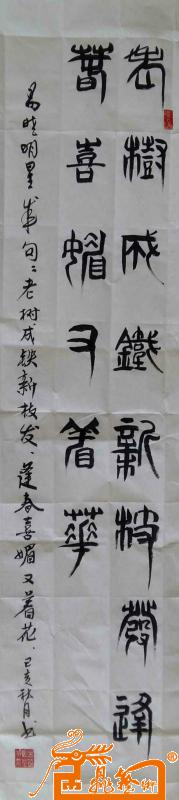 老樹成鐵新枝發逢
春喜媚又着華
易晓明星岁句：老树成铁新枝发、逢春喜媚又着花、己亥秋月书